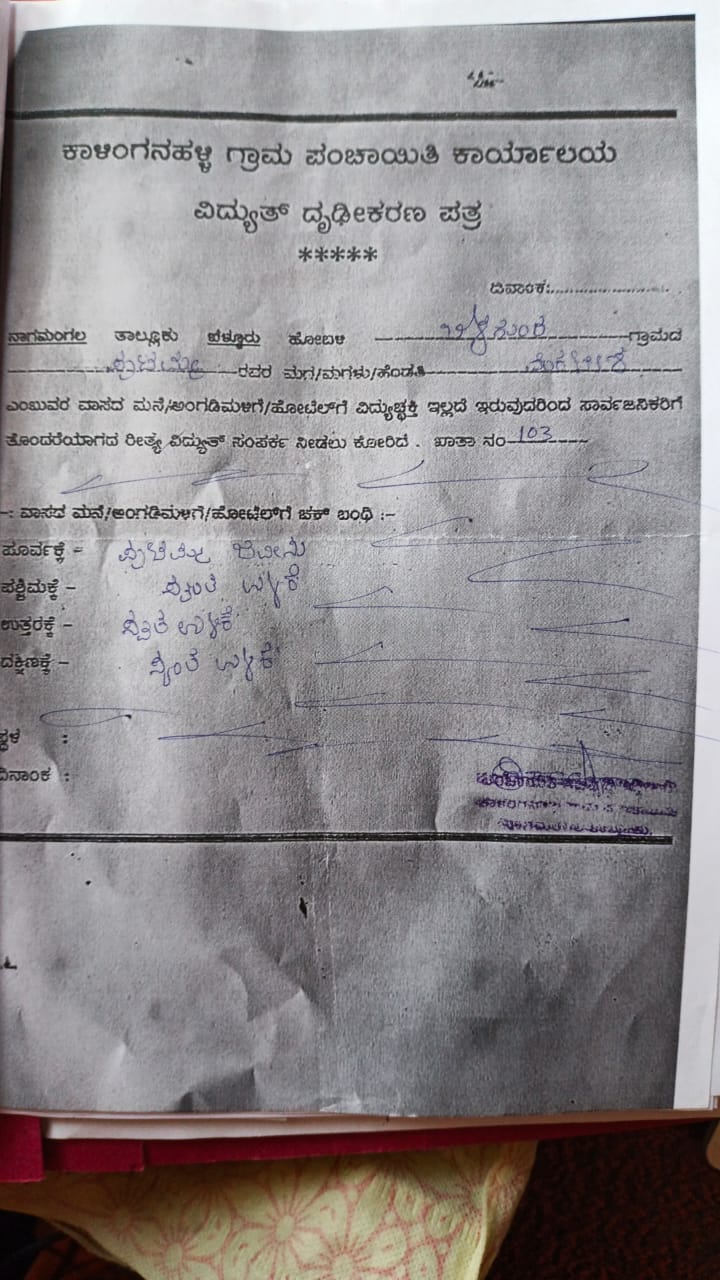 ಕಾಳಿಂಗನಹಳ್ಳಿ ಗ್ರಾಮ ಪಂಚಾಯಿತಿ ಕಾರ್ಯಾಲಯ
ವಿದ್ಯುತ್ ದೃಢೀಕರಣ ಪತ್ರ
*****
ದಿನಾಂಕ:........................
ನಾಗಮಂಗಲ ತಾಲ್ಲೂಕು ಬೆಳ್ಳೂರು ಹೋಬಳಿ ಗ್ರಾಮದ
ರವರ ಮಗ/ಮಗಳು/ಹೆಂಡತಿ ವೆಂಕಟೇಶ
ಎಂಬುವರ ವಾಸದ ಮನೆ/ಅಂಗಡಿಮಳಿಗೆ/ಹೋಟೆಲ್‌ಗೆ ವಿದ್ಯುಚ್ಛಕ್ತಿ ಇಲ್ಲದೆ ಇರುವುದರಿಂದ ಸಾರ್ವಜನಿಕರಿಗೆ
ತೊಂದರೆಯಾಗದ ರೀತ್ಯ ವಿದ್ಯುತ್ ಸಂಪರ್ಕ ನೀಡಲು ಕೋರಿದೆ . ಖಾತಾ ನಂ 103
-: ವಾಸದ ಮನೆ/ಅಂಗಡಿಮಳಿಗೆ/ಹೋಟೆಲ್‌ಗೆ ಚಕ್ ಬಂಧಿ :-
ಪೂರ್ವಕ್ಕೆ - ಜಮೀನು
ಪಶ್ಚಿಮಕ್ಕೆ - ಸ್ವಂತ
ಉತ್ತರಕ್ಕೆ - ಸ್ವಂತ
ದಕ್ಷಿಣಕ್ಕೆ - ಸ್ವಂತ
ಸ್ಥಳ :
ದಿನಾಂಕ :